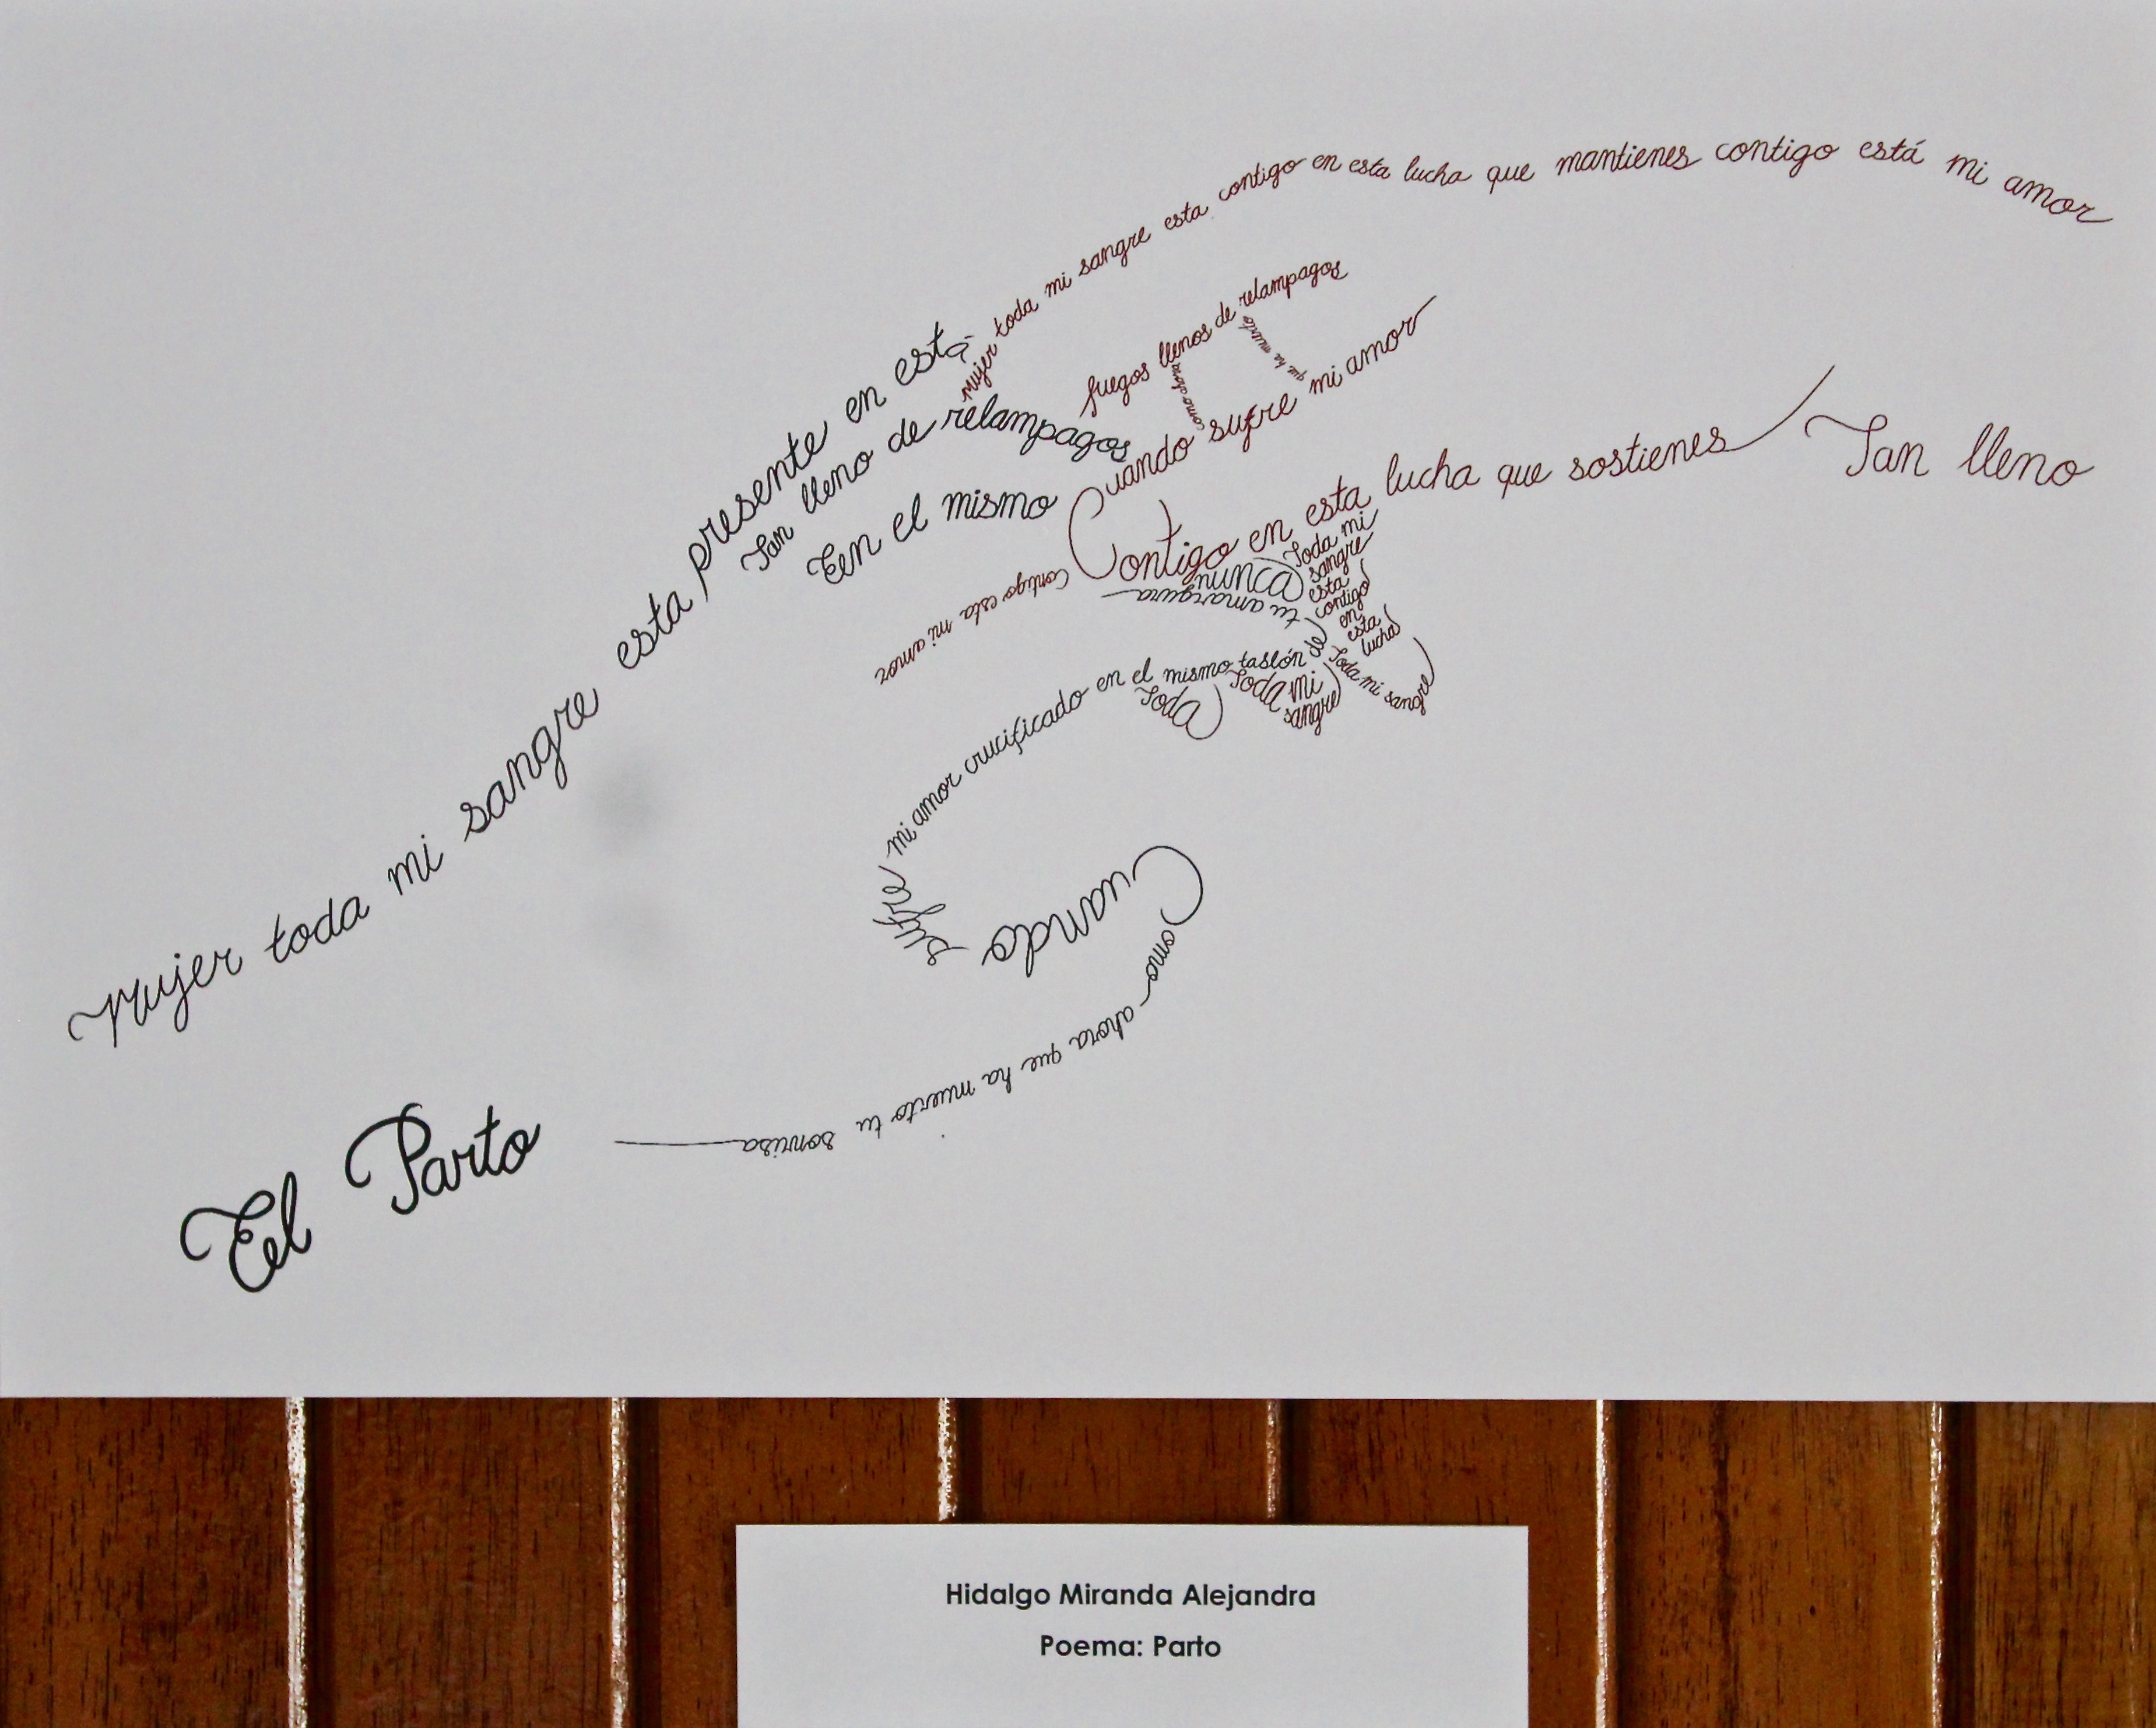 mujer toda mi sangre esta contigo en esta lucha que mantienes contigo está mi amor
Mujer toda mi sangre esta presente en está
Tan lleno de relampagos
fuegos llenos de relampagos
como ahora
que ha muerto
En el mismo
Cuando sufre mi amor
Contigo en esta lucha que sostienes
Tan lleno
Contigo esta mi amor
nunca
tu amargura
Toda mi
sangre
esta
contigo
en
esta
lucha
de
Toda mi sangre
mi amor crucificado en el mismo
Toda
Toda mi
sangre
sufre
Cuando
Como ahora que ha muerto tu sonrisa
El Parto
Hidalgo Miranda Alejandra
Poema: Parto